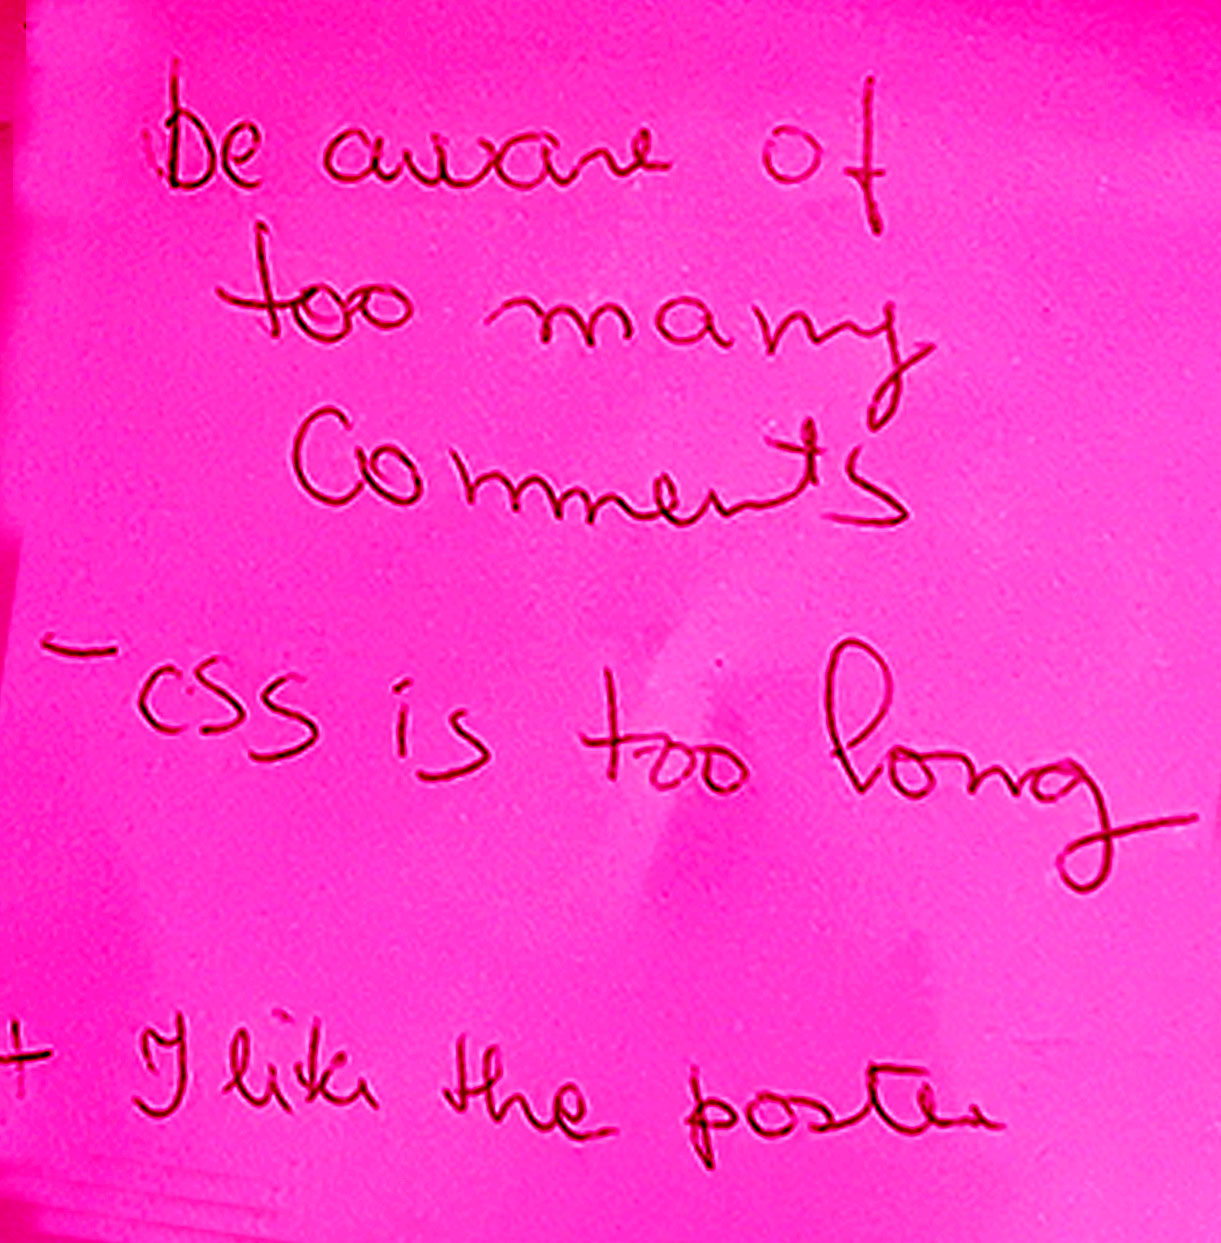 be aware of
too many
Comments
- css is too long
+ I like the poster